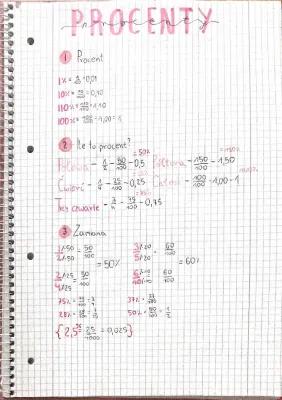 PROCENTY
procenty
1 Procent
1% = 1/100 = 0,01
10% = 10/100 = 0,10
110% = 110/100 = 1,10
100% = 100/100 = 1,00 = 1
2 Ile to procent?
Połowa - 1/2 = 50/100 = 0,5 = 50% Półtora = 150/100 = 1,50 = 150%
Ćwierć - 1/4 = 25/100 = 0,25 Całość - 100/100 = 1,00 = 1
Trzy czwarte - 3/4 = 75/100 = 0,75
3 Zamiana
= 50/100 3/5 = 60/100
= 50% = 60%
2/4 = 50/100 60/100
75% = 75/100 = 3/4 37% = 37/100
50% = 50/100 = 1/2
{2,5% = 25/1000 = 0,025}